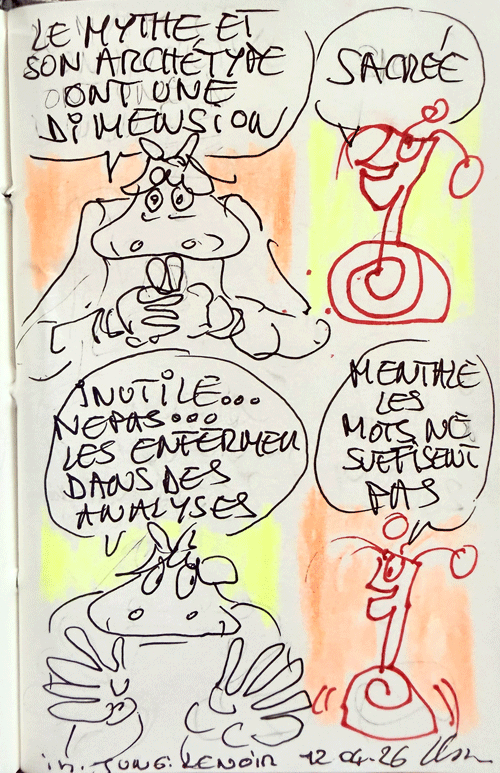 LE MYTHE ET
SON ARCHÉTYPE
ONT UNE
DIMENSION
SACRÉE
INUTILE...
NE PAS...
LES ENFERMER
DANS DES
ANALYSES
MENTALE
LES
MOTS NE
SUFFISENT
PAS
in. JUNG. RENOIR 12 04.26